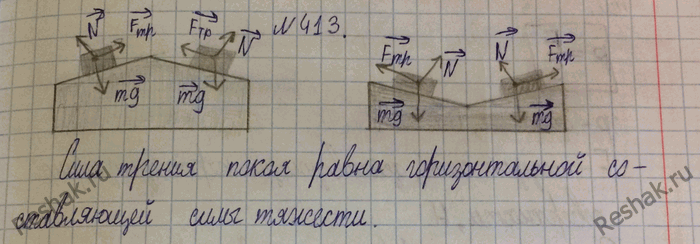 №413.
N Fтр Fтр N
mg mg
Fтр N N Fтр
mg mg
Сила трения покоя равна горизонтальной со-
ставляющей силы тяжести.
Reshak.ru
Reshak.ru